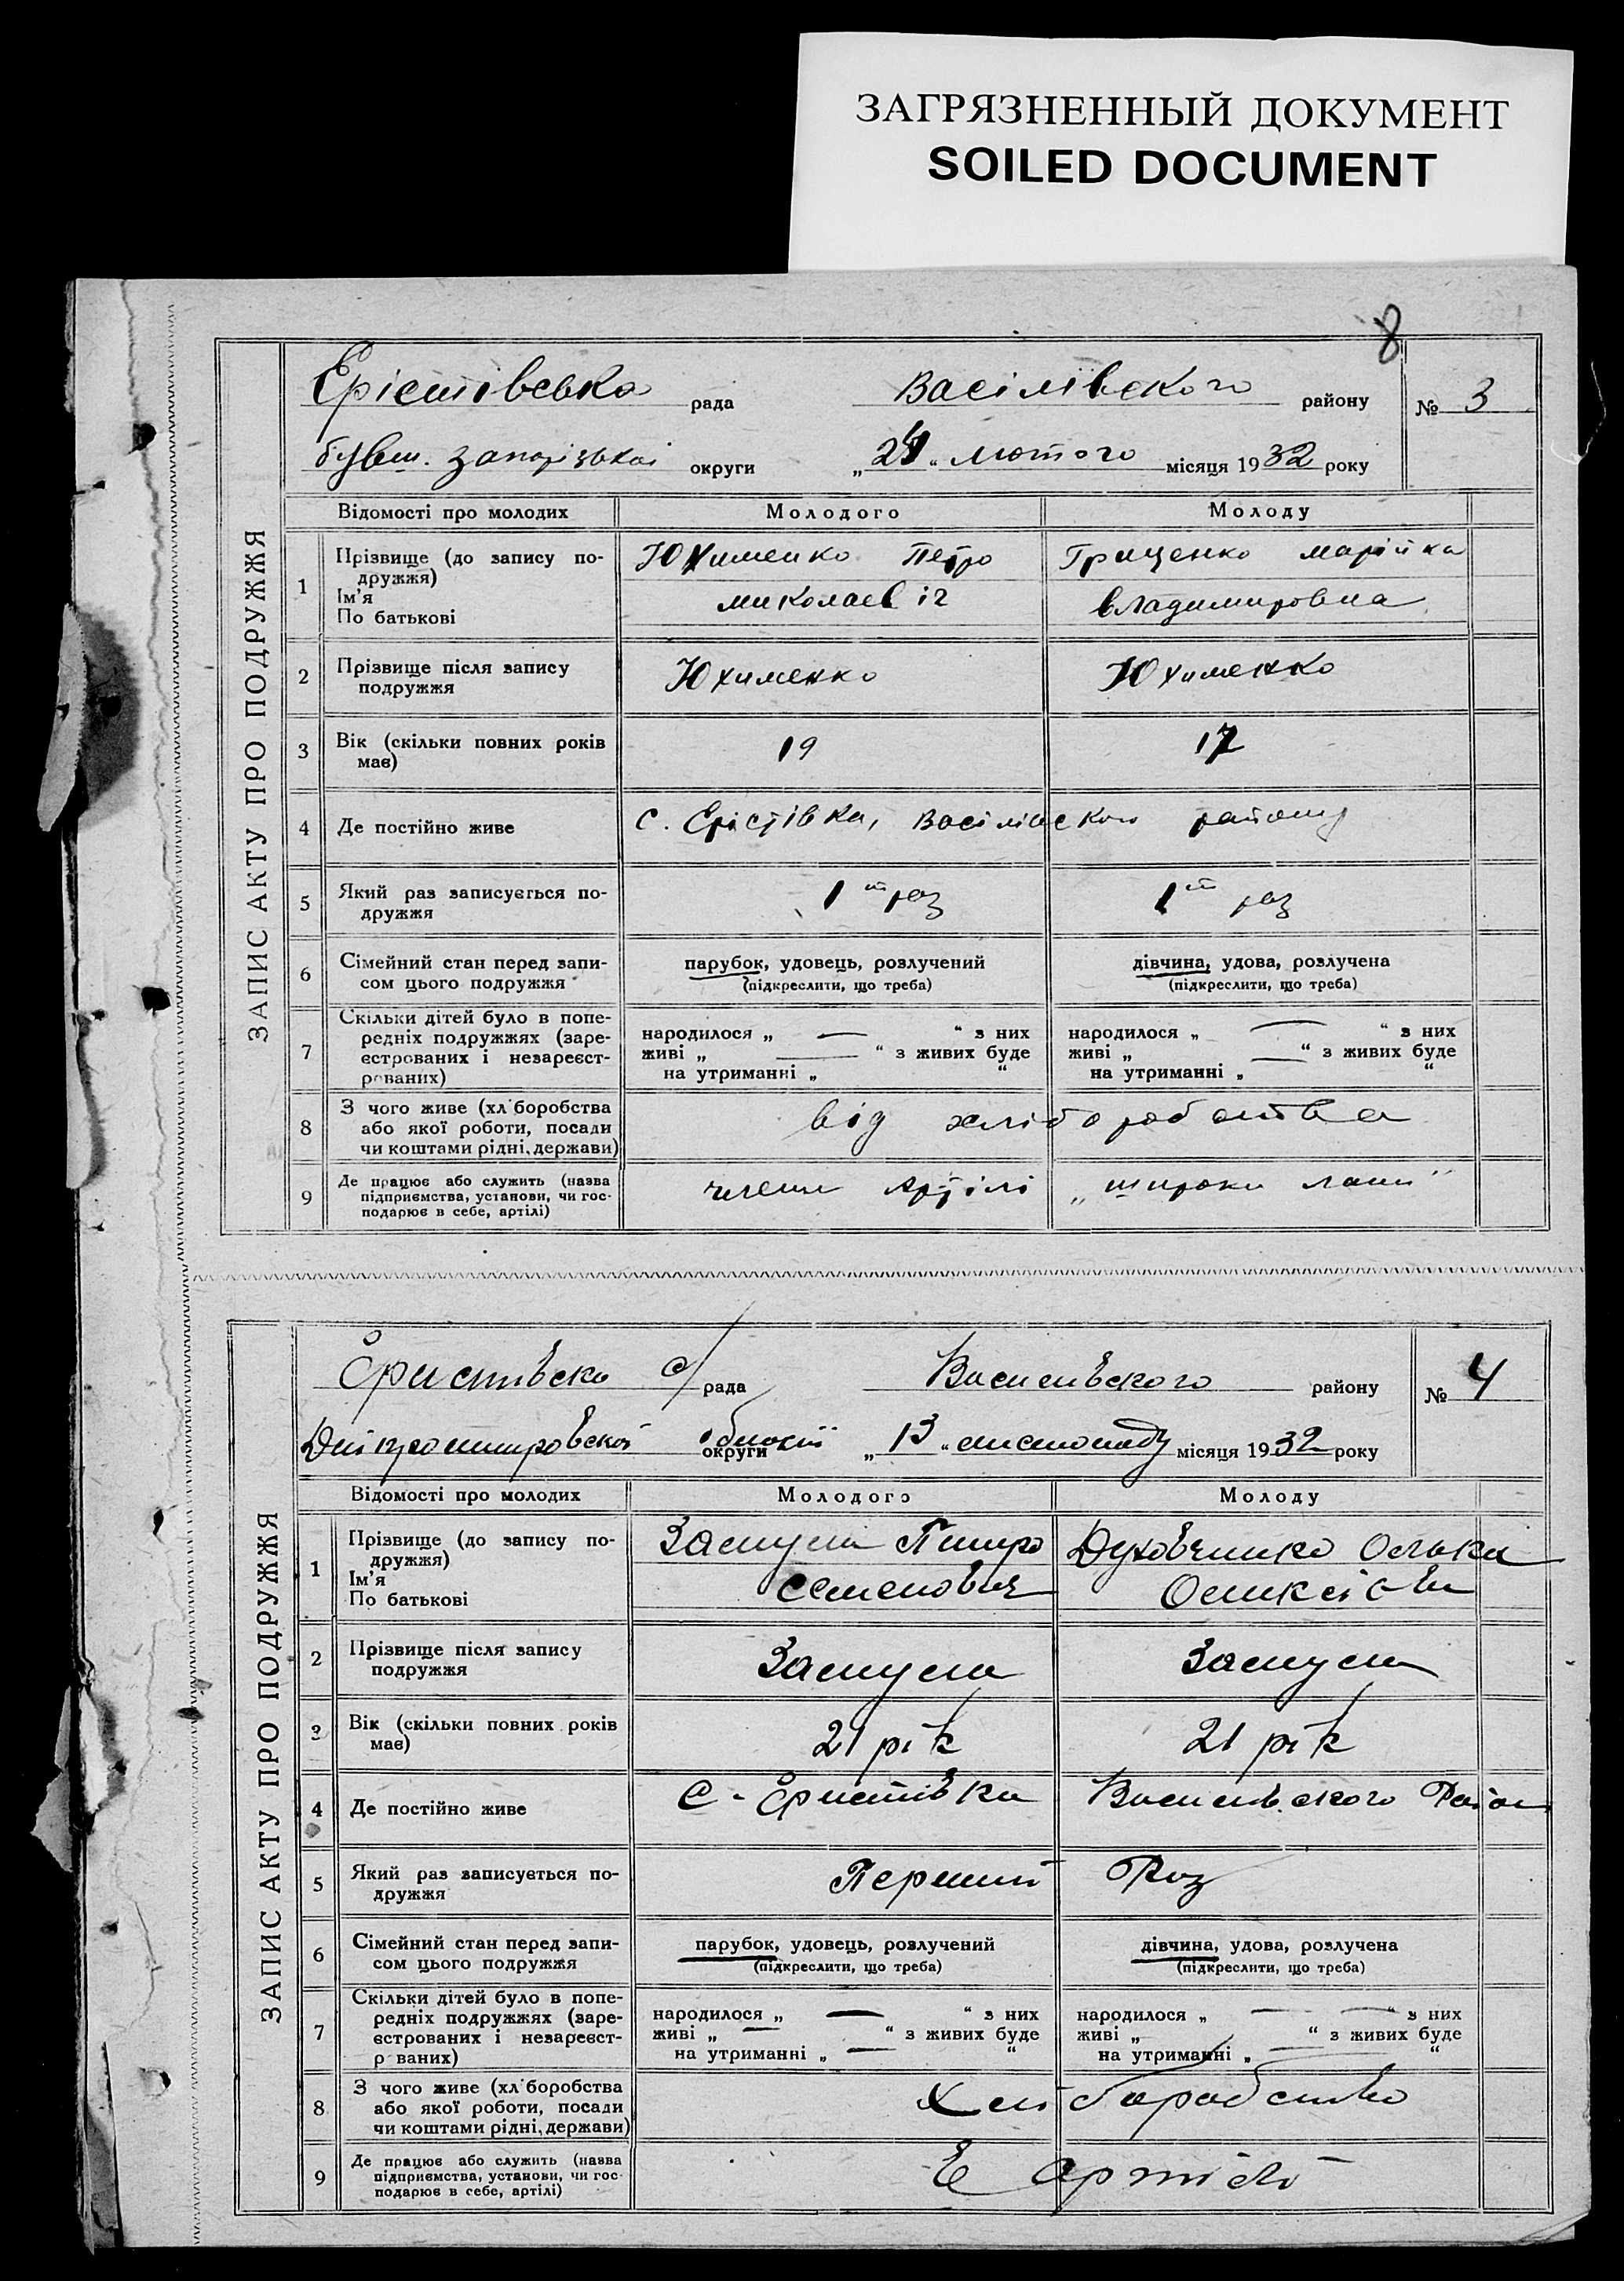 ЗАГРЯЗНЕННЫЙ ДОКУМЕНТ
SOILED DOCUMENT
8
ЗАПИС АКТУ ПРО ПОДРУЖЖЯ
Ерістівська рада Васілівского району № 3
бувш. Запорізькоі округи „ “ лютого місяця 1932 року
Відомості про молодих Молодого Молоду
1 Прізвище (до запису по-
дружжя)
Ім'я
По батькові
Юхименко Петро
миколаевіч
Грищенко марійка
владимировна
2 Прізвище після запису
подружжя
Юхименко Юхименко
3 Вік (скільки повних років
має)
19 17
4 Де постійно живе с. Ерістівка, Васілівского району
5 Який раз записується по-
дружжя
1й раз 1й раз
6 Сімейний стан перед запи-
сом цього подружжя
парубок, удовець, розлучений
(підкреслити, що треба)
дівчина, удова, розлучена
(підкреслити, що треба)
7 Скільки дітей було в попе-
редніх подружжях (заре-
єстрованих і незареєст-
рованих)
народилося „ — “ з них
живі „ — “ з живих буде
на утриманні „ “
народилося „ — “ з них
живі „ — “ з живих буде
на утриманні „ “
8 З чого живе (хліборобства
або якої роботи, посади
чи коштами рідні, держави)
від хліборобства
9 Де працює або служить (назва
підприємства, установи, чи гос-
подарює в себе, артілі)
члени Артілі „широки лани“
ЗАПИС АКТУ ПРО ПОДРУЖЖЯ
Еристівска с/рада Василівского району № 4
округи „13“ листопаду місяця 1932 року
Відомості про молодих Молодого Молоду
1 Прізвище (до запису по-
дружжя)
Ім'я
По батькові
Петро
Семенович
Олькси
2 Прізвище після запису
подружжя
3 Вік (скільки повних років
має)
21 рік 21 рік
4 Де постійно живе С-Еристівка Василівского Район
5 Який раз записується по-
дружжя
Перший Раз
6 Сімейний стан перед запи-
сом цього подружжя
парубок, удовець, розлучений
(підкреслити, що треба)
дівчина, удова, розлучена
(підкреслити, що треба)
7 Скільки дітей було в попе-
редніх подружжях (заре-
єстрованих і незареєст-
рованих)
народилося „ — “ з них
живі „ — “ з живих буде
на утриманні „ — “
народилося „ — “ з них
живі „ “ з живих буде
на утриманні „ — “
8 З чого живе (хліборобства
або якої роботи, посади
чи коштами рідні, держави)
Хліборобство
9 Де працює або служить (назва
підприємства, установи, чи гос-
подарює в себе, артілі)
В Артілі